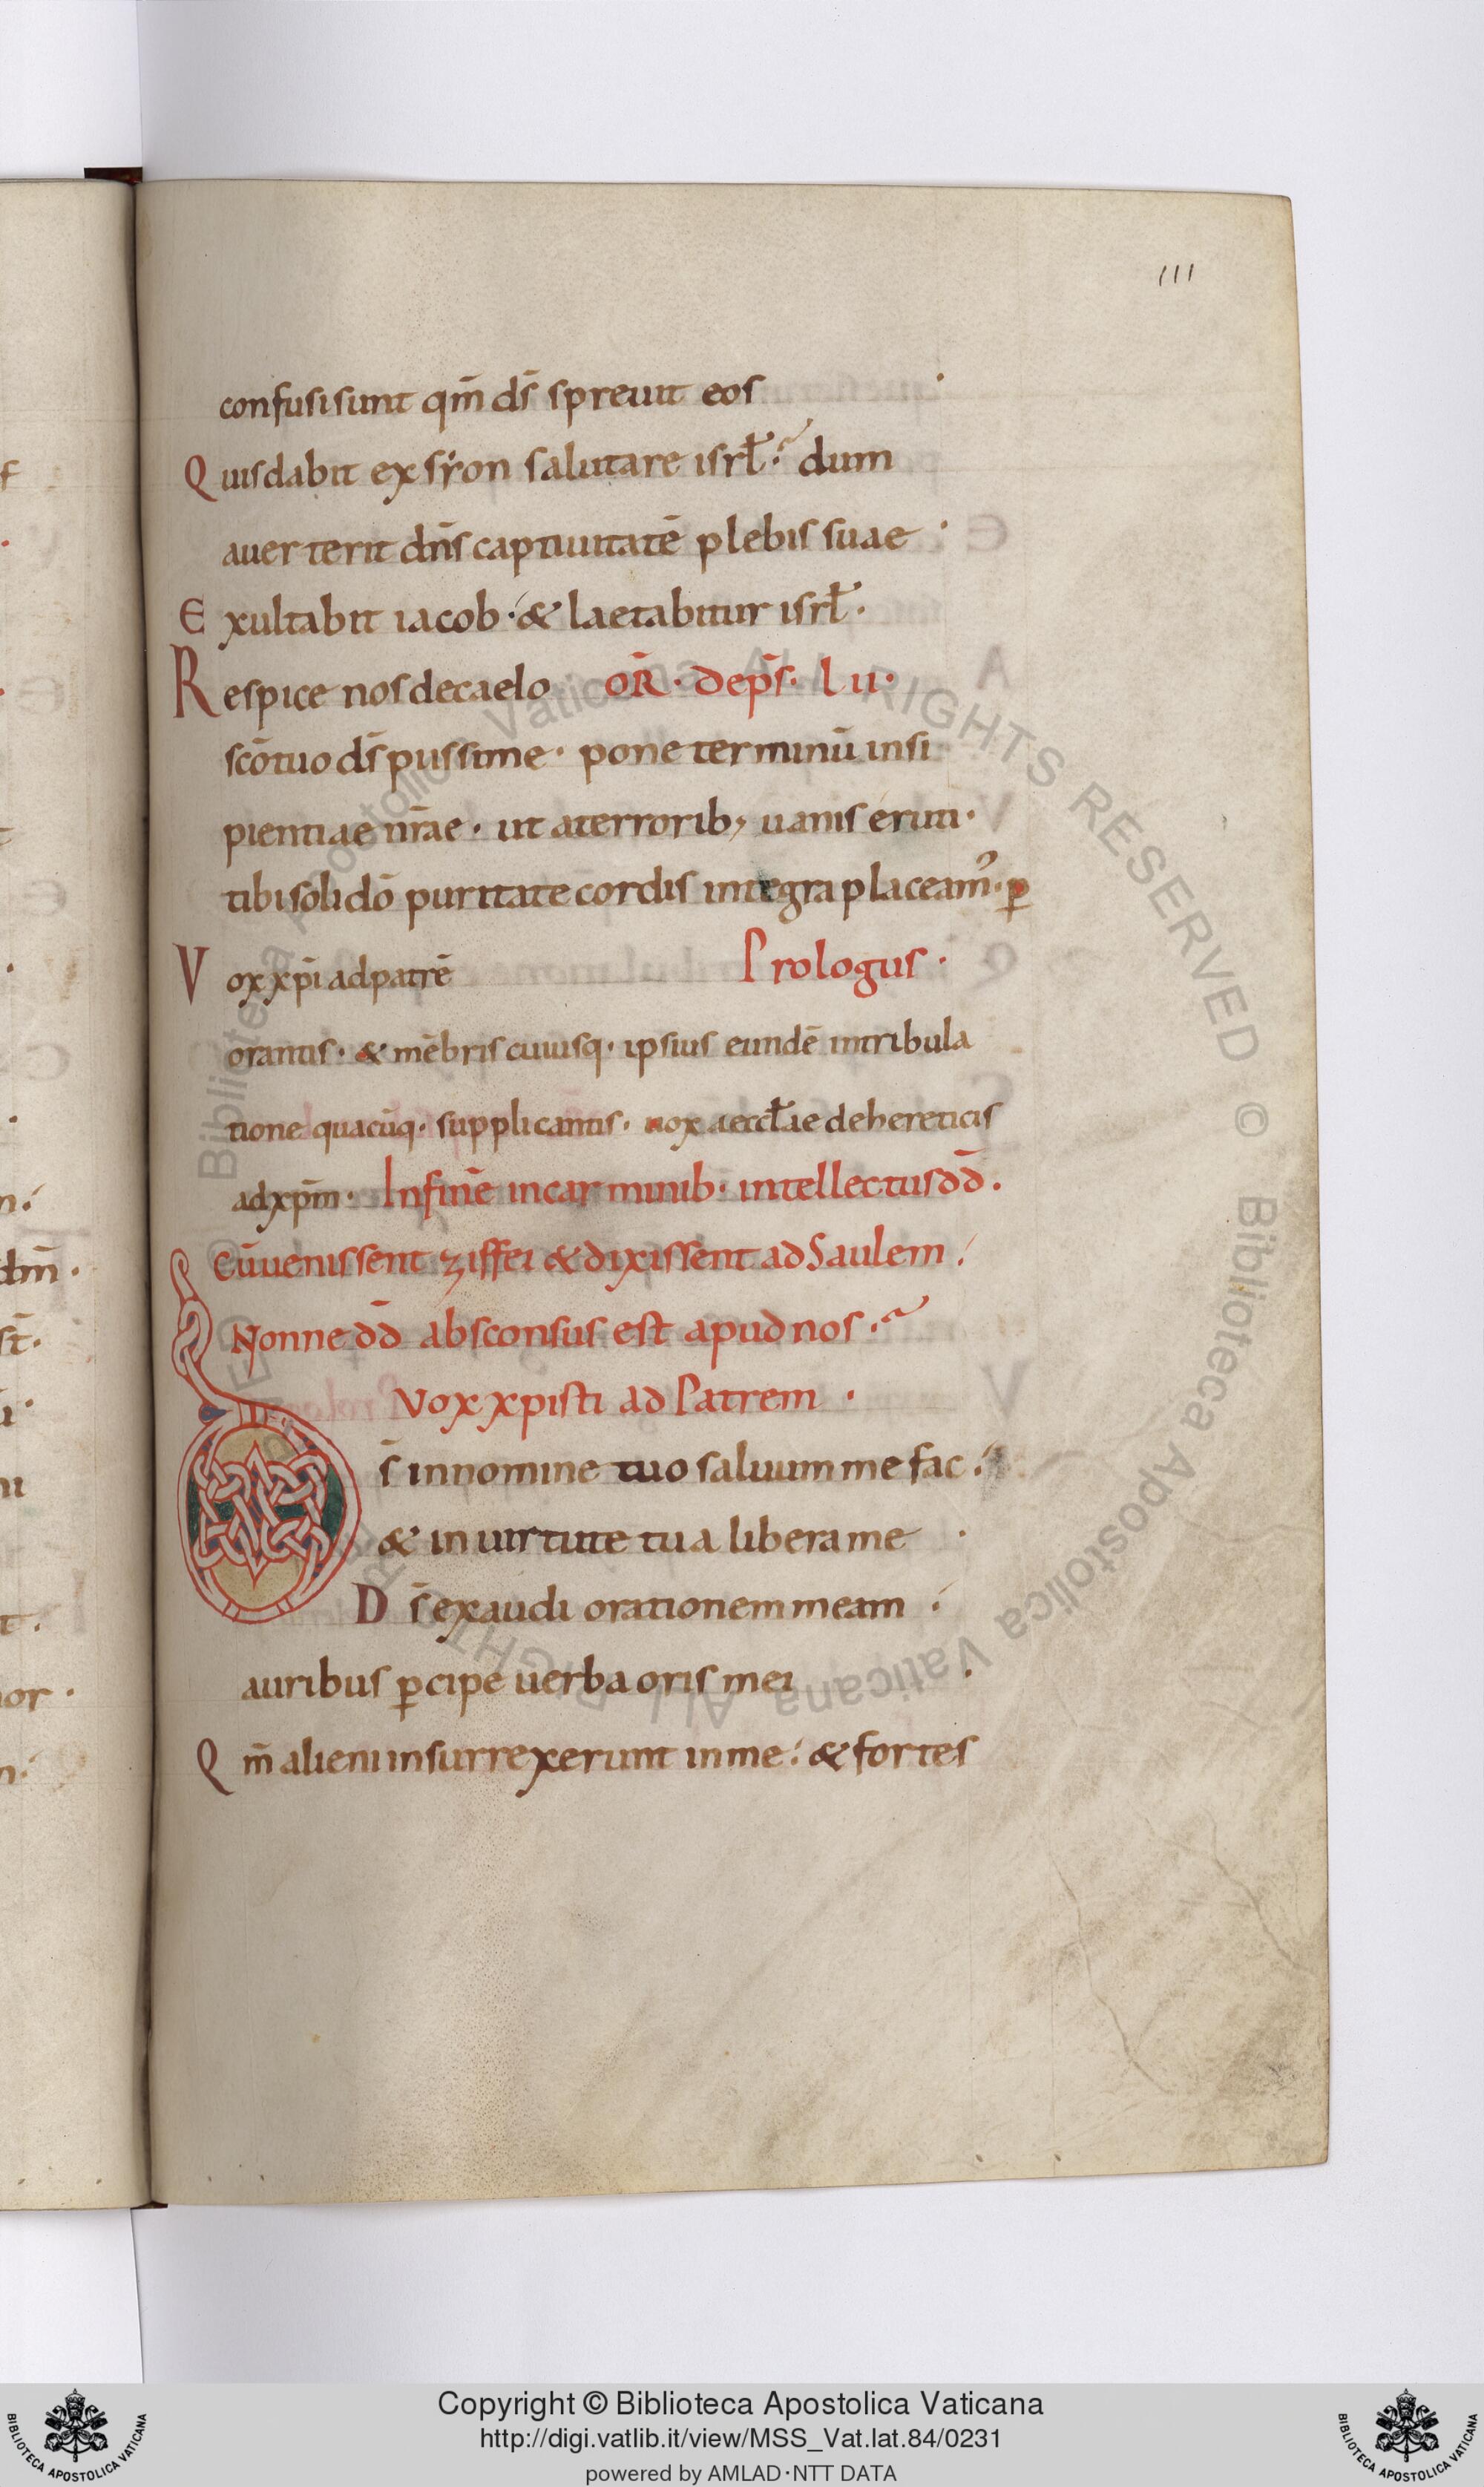 111
confusi sunt qm̄ ds̄ spreuit eos ·
Quis dabit ex syon salutare isrł? dum
auerterit dn̄s captiuitatē plebis suae ·
Exultabit iacob · & laetabitur isrł ·
Respice nos de caelo OR̄ · de ps̄ · lii ·
scō tuo ds̄ piissime · pone terminū insi
pientiae nr̄ae · ut a terrorib; uanis eruti ·
tibi soli dō puritate cordis integra placeam᾽ · ꝑ
Vox xp̄i ad patrē Prologus ·
orantis · & mēbris cuiusq · ipsius eundē in tribula
tione quacūq · supplicantis · uox aeccłae de hereticis
ad xp̄m · In finē in carminib · intellectus dd̄ ·
Cū uenissent ziffei & dixissent ad Saulem ·
Nonne dd̄ absconsus est apud nos ?
Vox xpisti ad Patrem ·
Ds̄ in nomine tuo saluum me fac ·
& in uirtute tua libera me ·
Ds̄ exaudi orationem meam ·
auribus ꝑcipe uerba oris mei ·
Qm̄ alieni insurrexerunt in me · & fortes
Copyright © Biblioteca Apostolica Vaticana
http://digi.vatlib.it/view/MSS_Vat.lat.84/0231
powered by AMLAD·NTT DATA
BIBLIOTECA APOSTOLICA VATICANA
BIBLIOTECA APOSTOLICA VATICANA